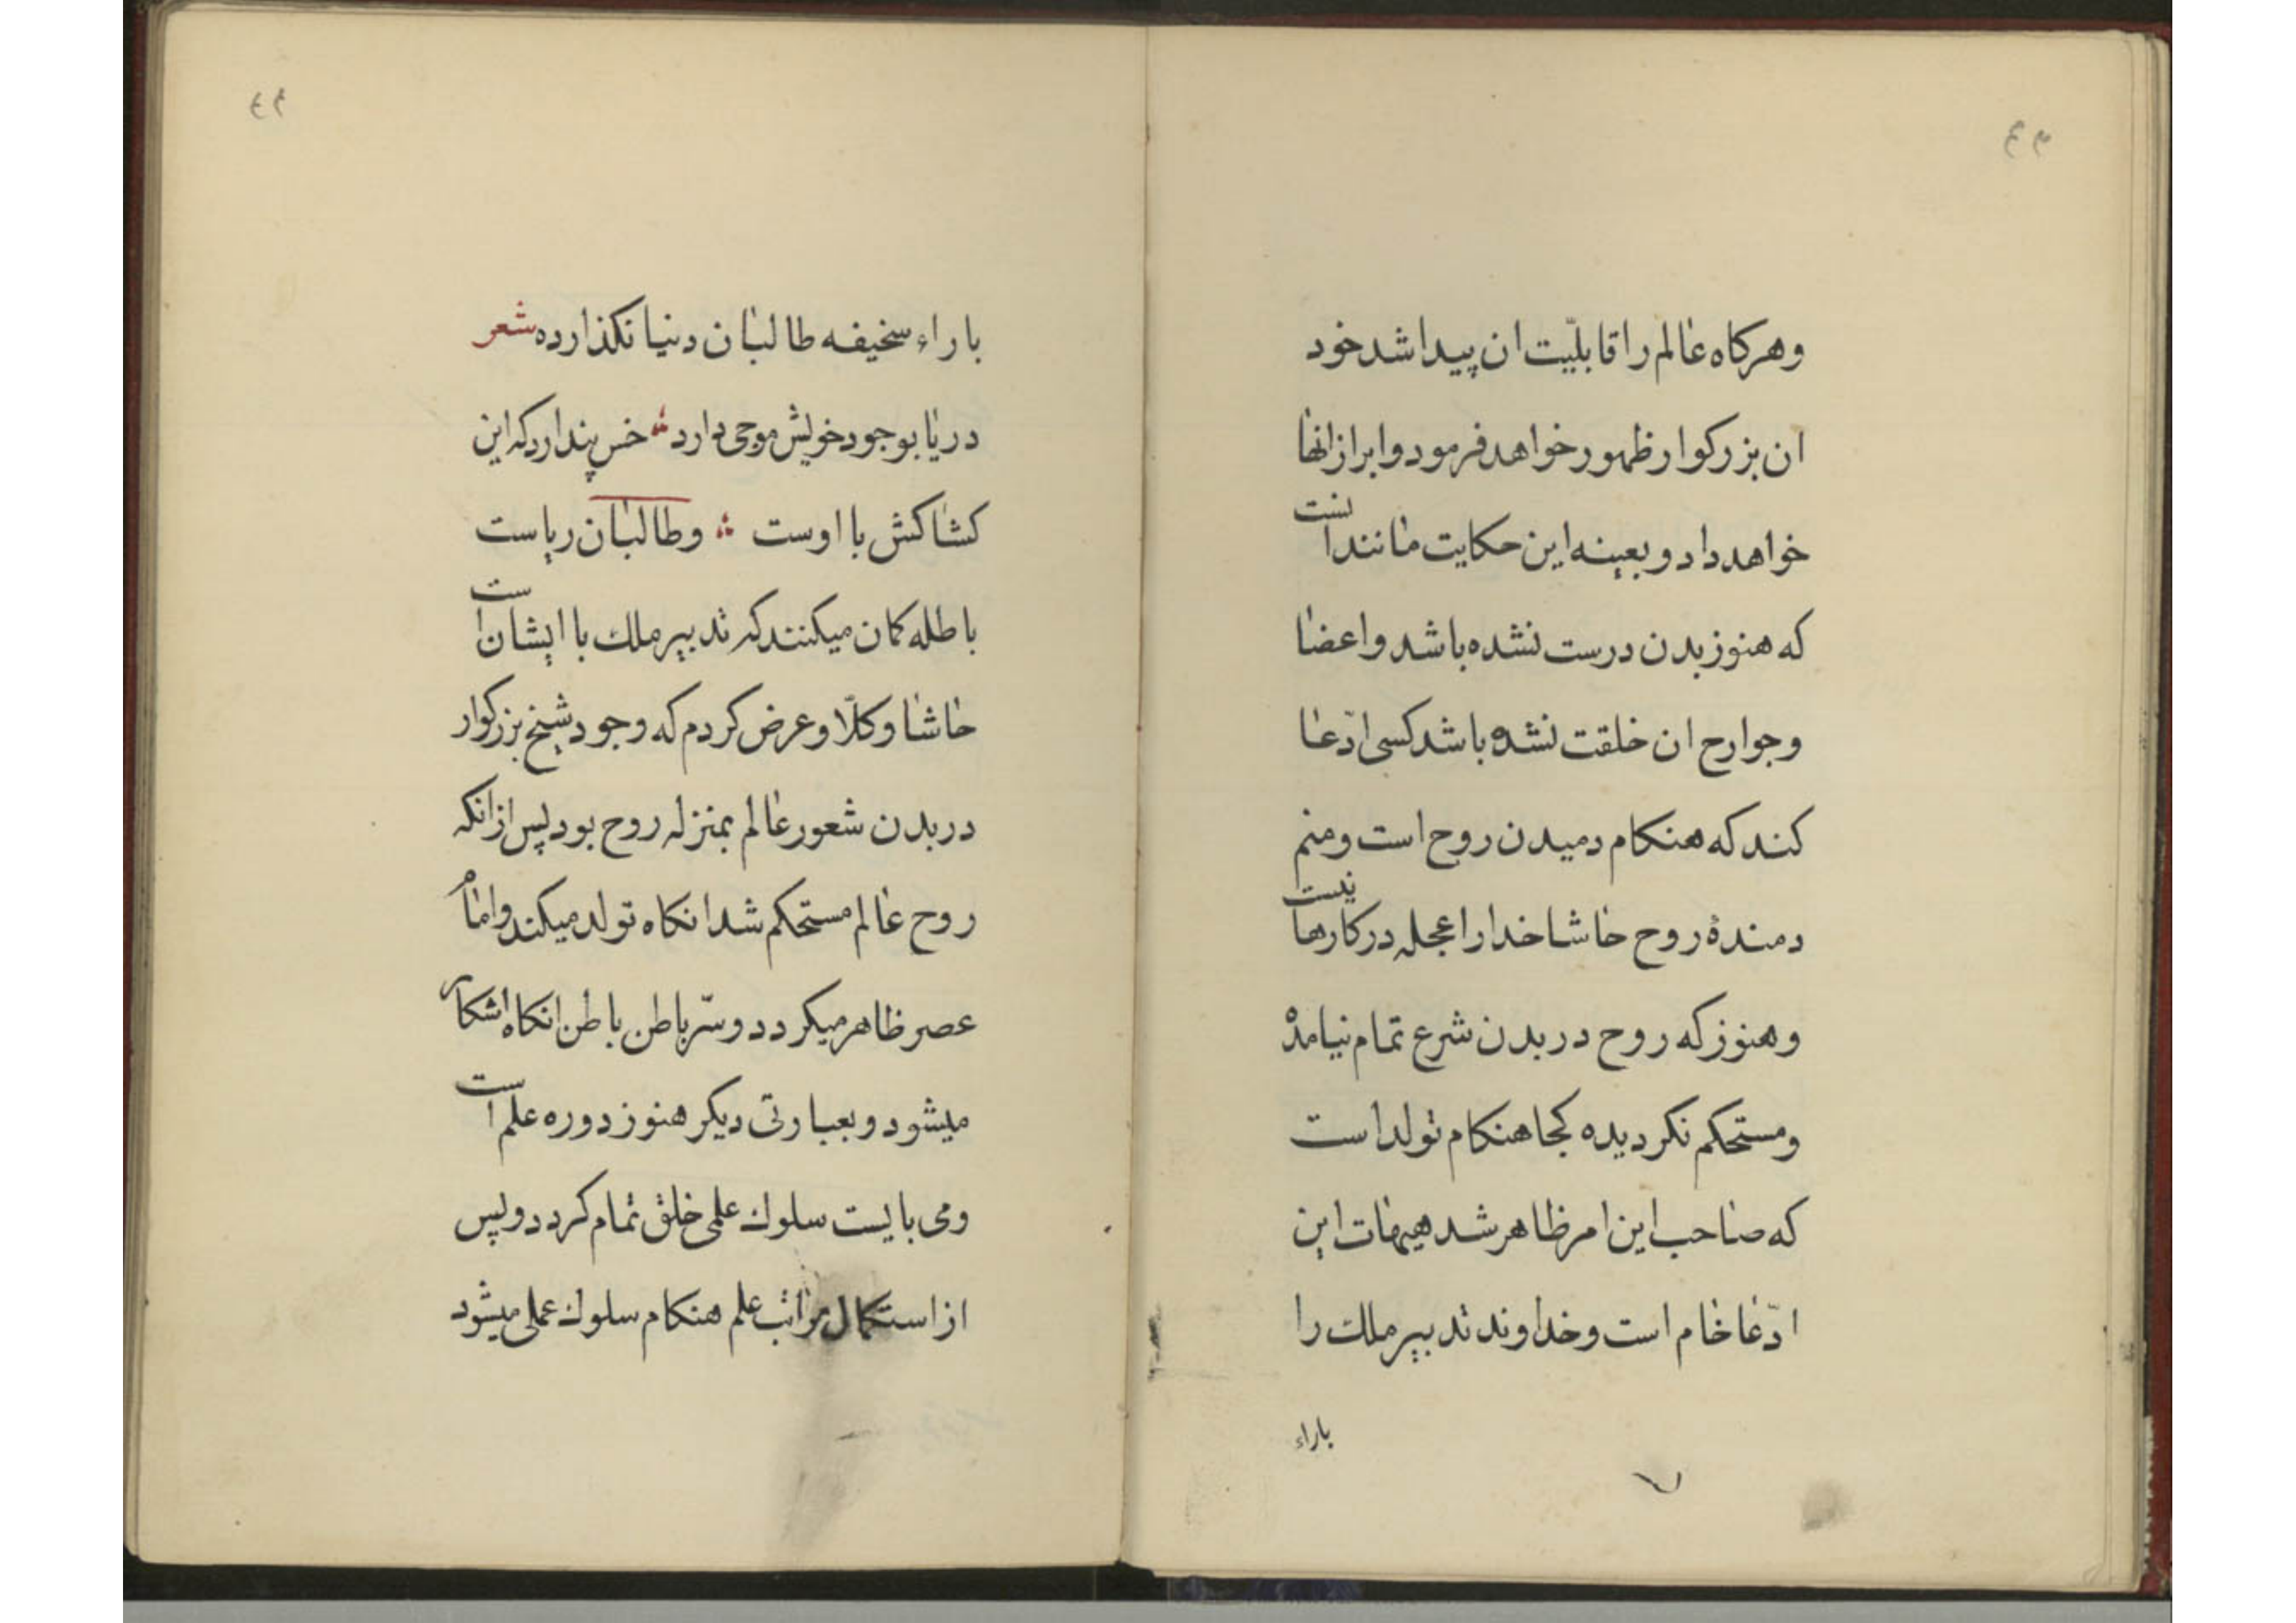 ۴۳
وهركاه عالم را قابليّت ان پيدا شد خود
ان بزركوار ظهور خواهد فرمود و ابراز انها
خواهد داد و بعينه اين حكايت مانند انست
كه هنوز بدن درست نشده باشد و اعضا
وجوارح ان خلقت نشده باشد كسى ادّعا
كند كه هنكام دميدن روح است ومنم
دمندهٔ روح حاشا خدا را عجله در كارها نيست
وهنوز كه روح در بدن شرع تمام نيامده
ومستحكم نكرديده كجا هنكام تولد است
كه صاحب اين امر ظاهر شد هيهات اين
ادّعا خام است وخداوند تدبير ملك را
باراء
۴۴
باراء سخيفه طالبان دنيا نكذارده شعر
دريا بوجود خويش موجى دارد خس پندارد كه اين
كشاكش با اوست وطالبان رياست
باطله كمان ميكنند كه تدبير ملك با ايشان است
حاشا وكلّا وعرض كردم كه وجود شيخ بزركوار
در بدن شعور عالم بمنزله روح بود پس از انكه
روح عالم مستحكم شد انكاه تولد ميكند وامام
عصر ظاهر ميكردد وسرّ باطن باطن انكاه اشكار
ميشود وبعبارتى ديكر هنوز دوره علم است
ومى بايست سلوك علمى خلق تمام كردد وپس
از استكمال مراتب علم هنكام سلوك عملى ميشود